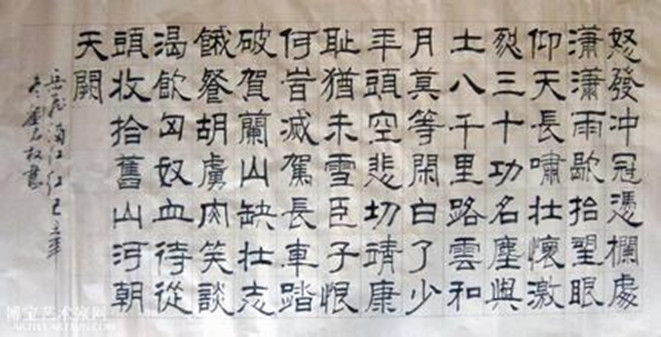 怒發冲冠憑欄處
瀟瀟雨歇抬望眼
仰天長嘯壯懷激
烈三十功名塵與
土八千里路雲和
月莫等閑白了少
年頭空悲切靖康
耻猶未雪臣子恨
何旹滅駕長車踏
破賀蘭山缺壯志
餓餐胡虜肉笑談
渴飲匈奴血待從
頭收拾舊山河朝
天闕
岳飛滿江紅己丑年
冬書
博宝艺术家网
ARTIST.ARTXUN.COM